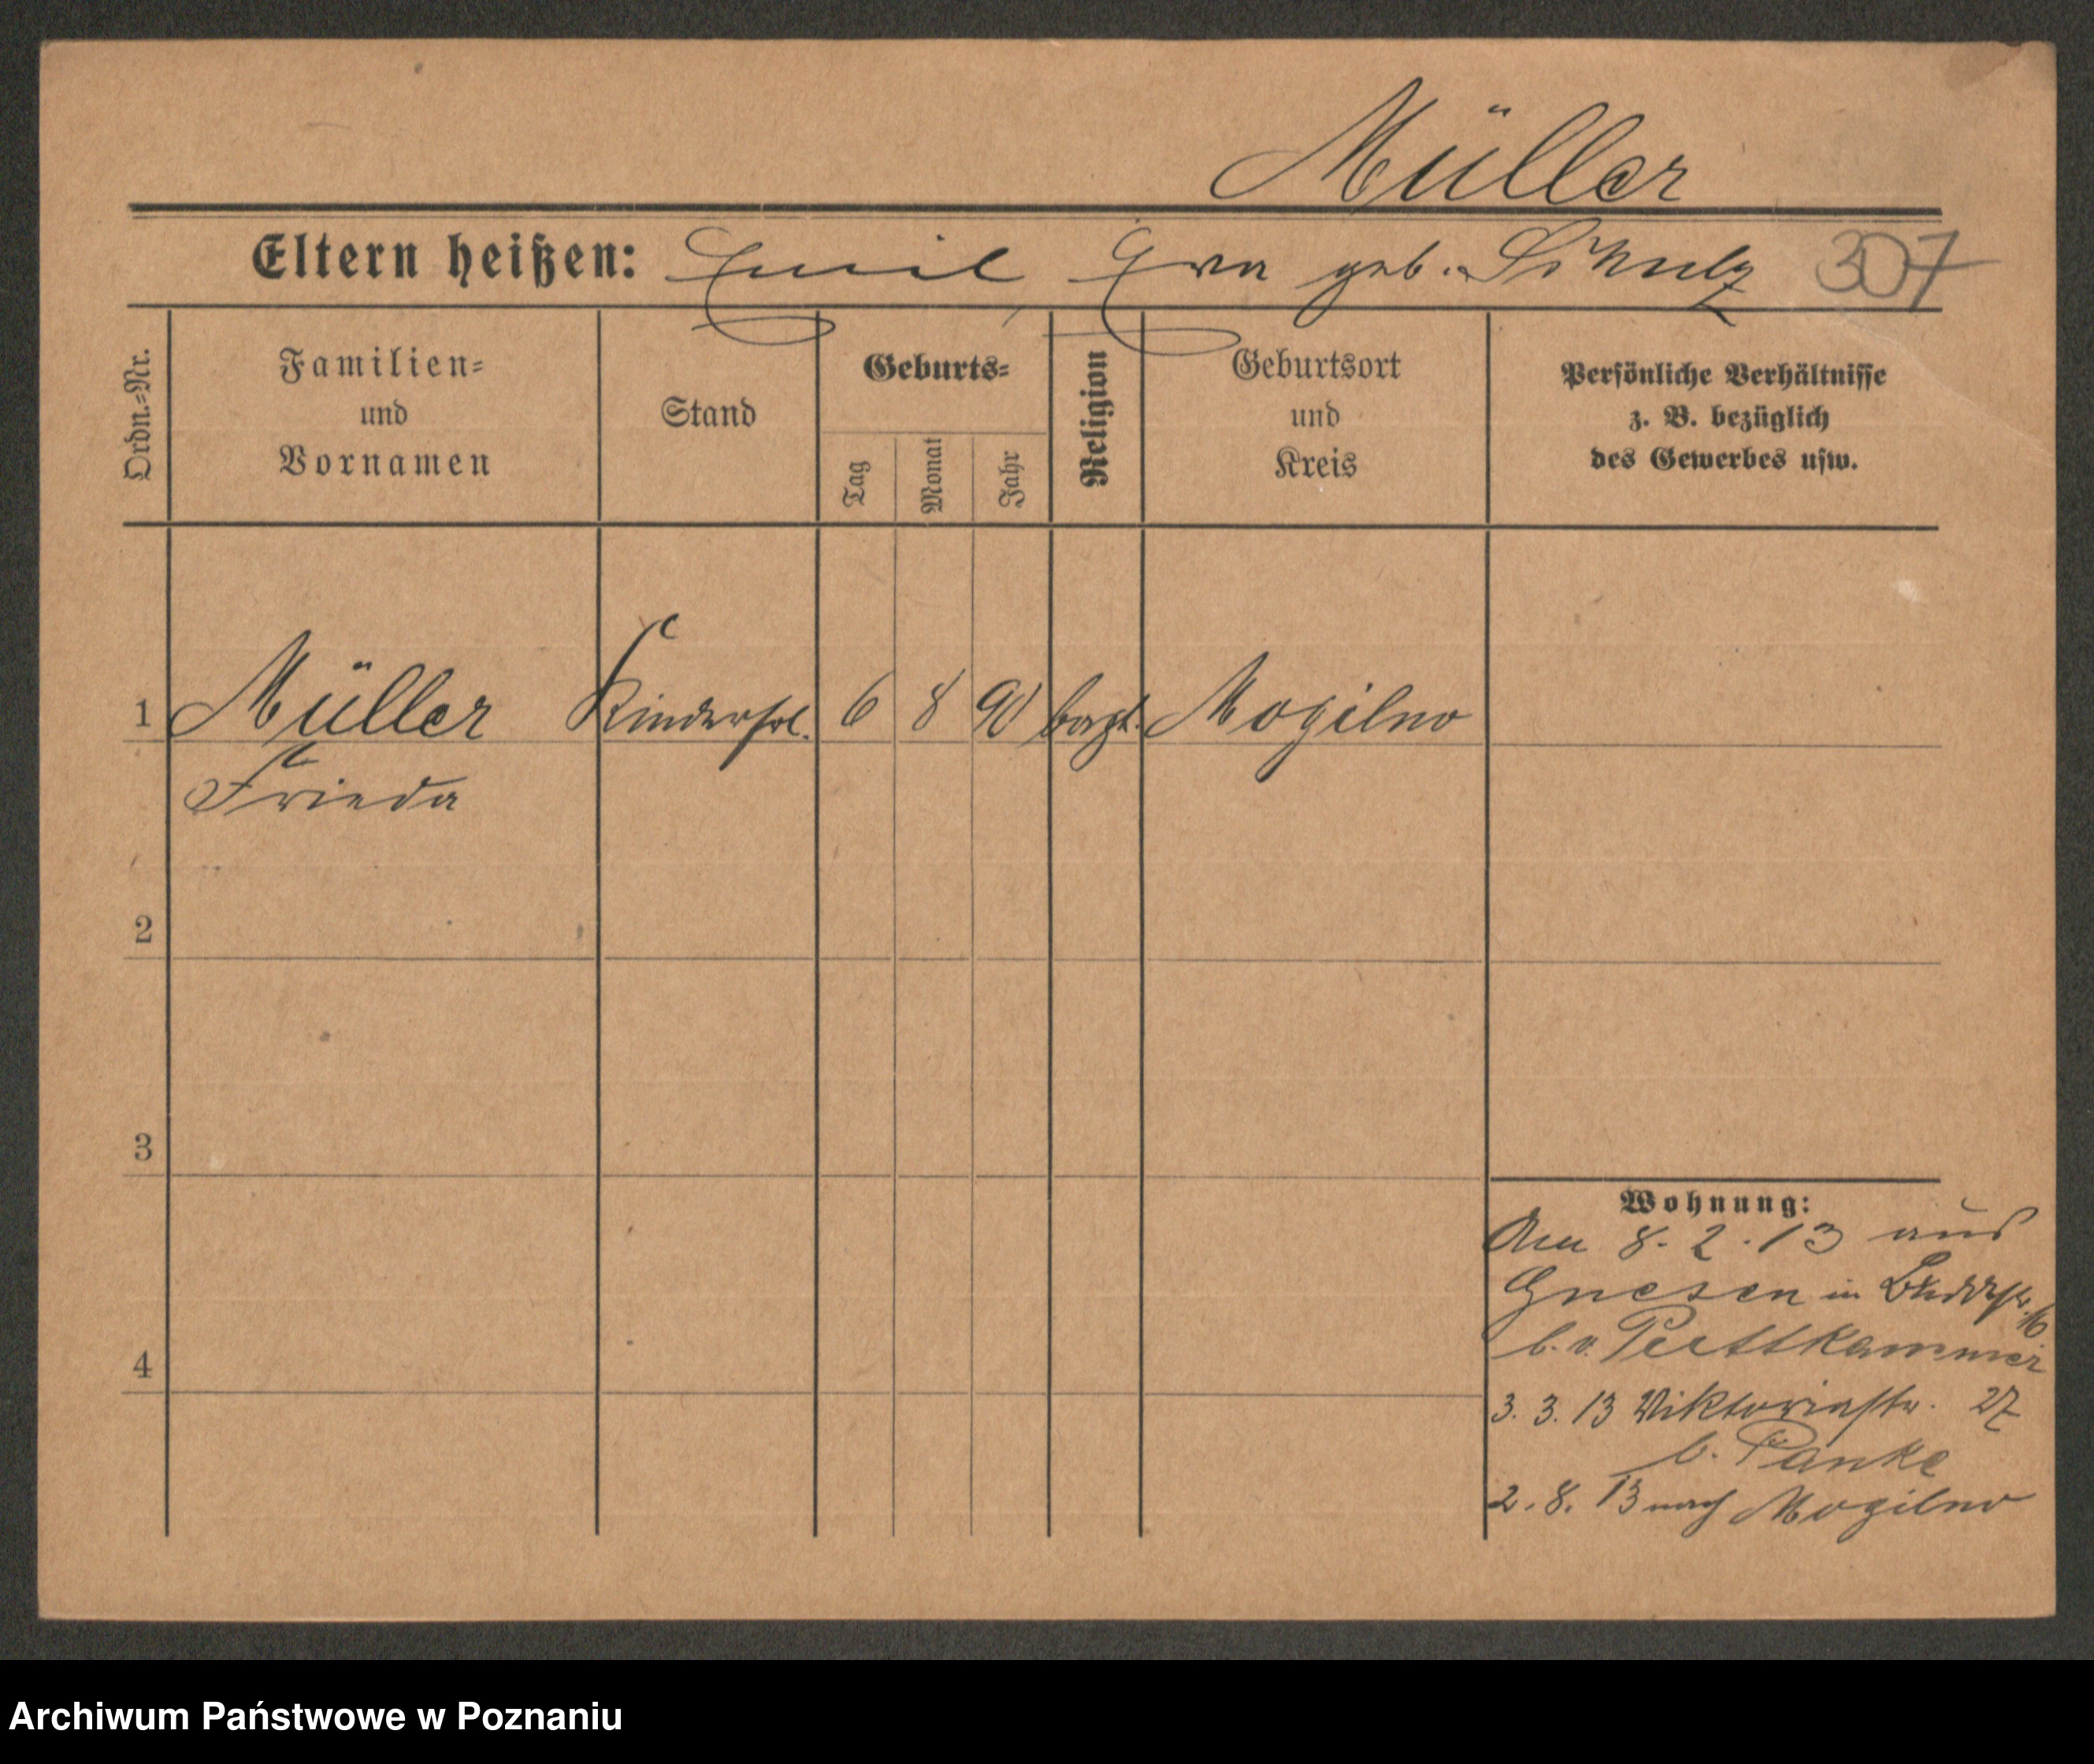 Müller
Eltern heißen: Emil Eva geb. Schulz 307
Ordn.=Nr.
Familien=
und
Vornamen
Stand
Geburts=
Tag
Monat
Jahr
Religion
Geburtsort
und
Kreis
Persönliche Verhältnisse
z. B. bezüglich
des Gewerbes usw.
1 Müller Kinderfrl. 6 8 90 Mogilno
Frieda
2
3
4
Wohnung:
Am 8. 2. 13 aus
Gnesen in 16
b. v. Puttkammer
3. 3. 13 Viktoriastr. 27
b. Panke
2. 8. 13 nach Mogilno
Archiwum Państwowe w Poznaniu